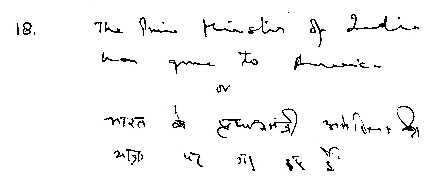 18. The Prime Minister of India
has gone to America
or
भारत के प्रधानमंत्री अमेरिका की
यात्रा पर गए हुए हैं